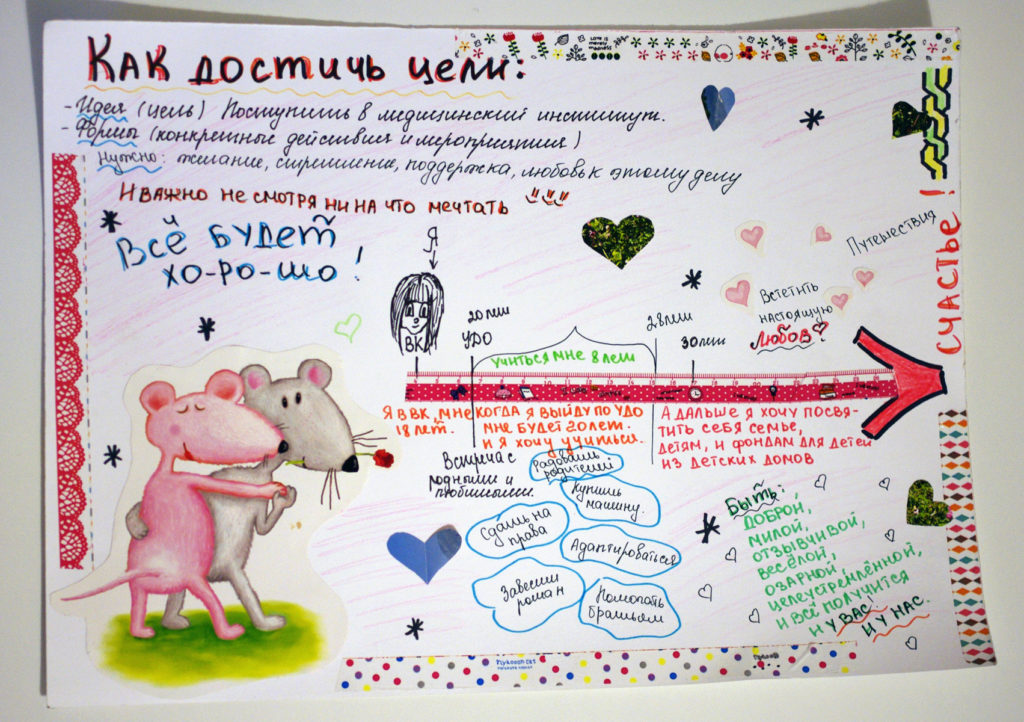 Как достичь цели:
- Идея (цель) Поступить в медицинский институт.
- Формы (конкретные действия и мероприятия)
Нужно: желание, стремление, поддержка, любовь к этому делу
И важно не смотря ни на что мечтать
Всё будет
хо-ро-шо!
Я
ВК
20 лет
УДО
учиться мне 8 лет
28 лет
30 лет
Путешествия
Встетить
настоящую
Любов?
СЧАСТЬЕ!
Я в ВК, мне
18 лет.
Когда я выйду по УДО
мне будет 20 лет.
и я хочу учиться.
А дальше я хочу посвя-
тить себя семье,
детям, и фондам для детей
из детских домов
Встреча с
родными и
любимыми.
Радовать
родителей
Купить
машину.
Сдать на
права
Адаптироваться
Завести
роман
Помогать
братьям
Быть:
доброй,
милой,
отзывчивой,
весёлой,
озарной,
целеустремлённой,
и всё получится
и у вас.
и у нас.